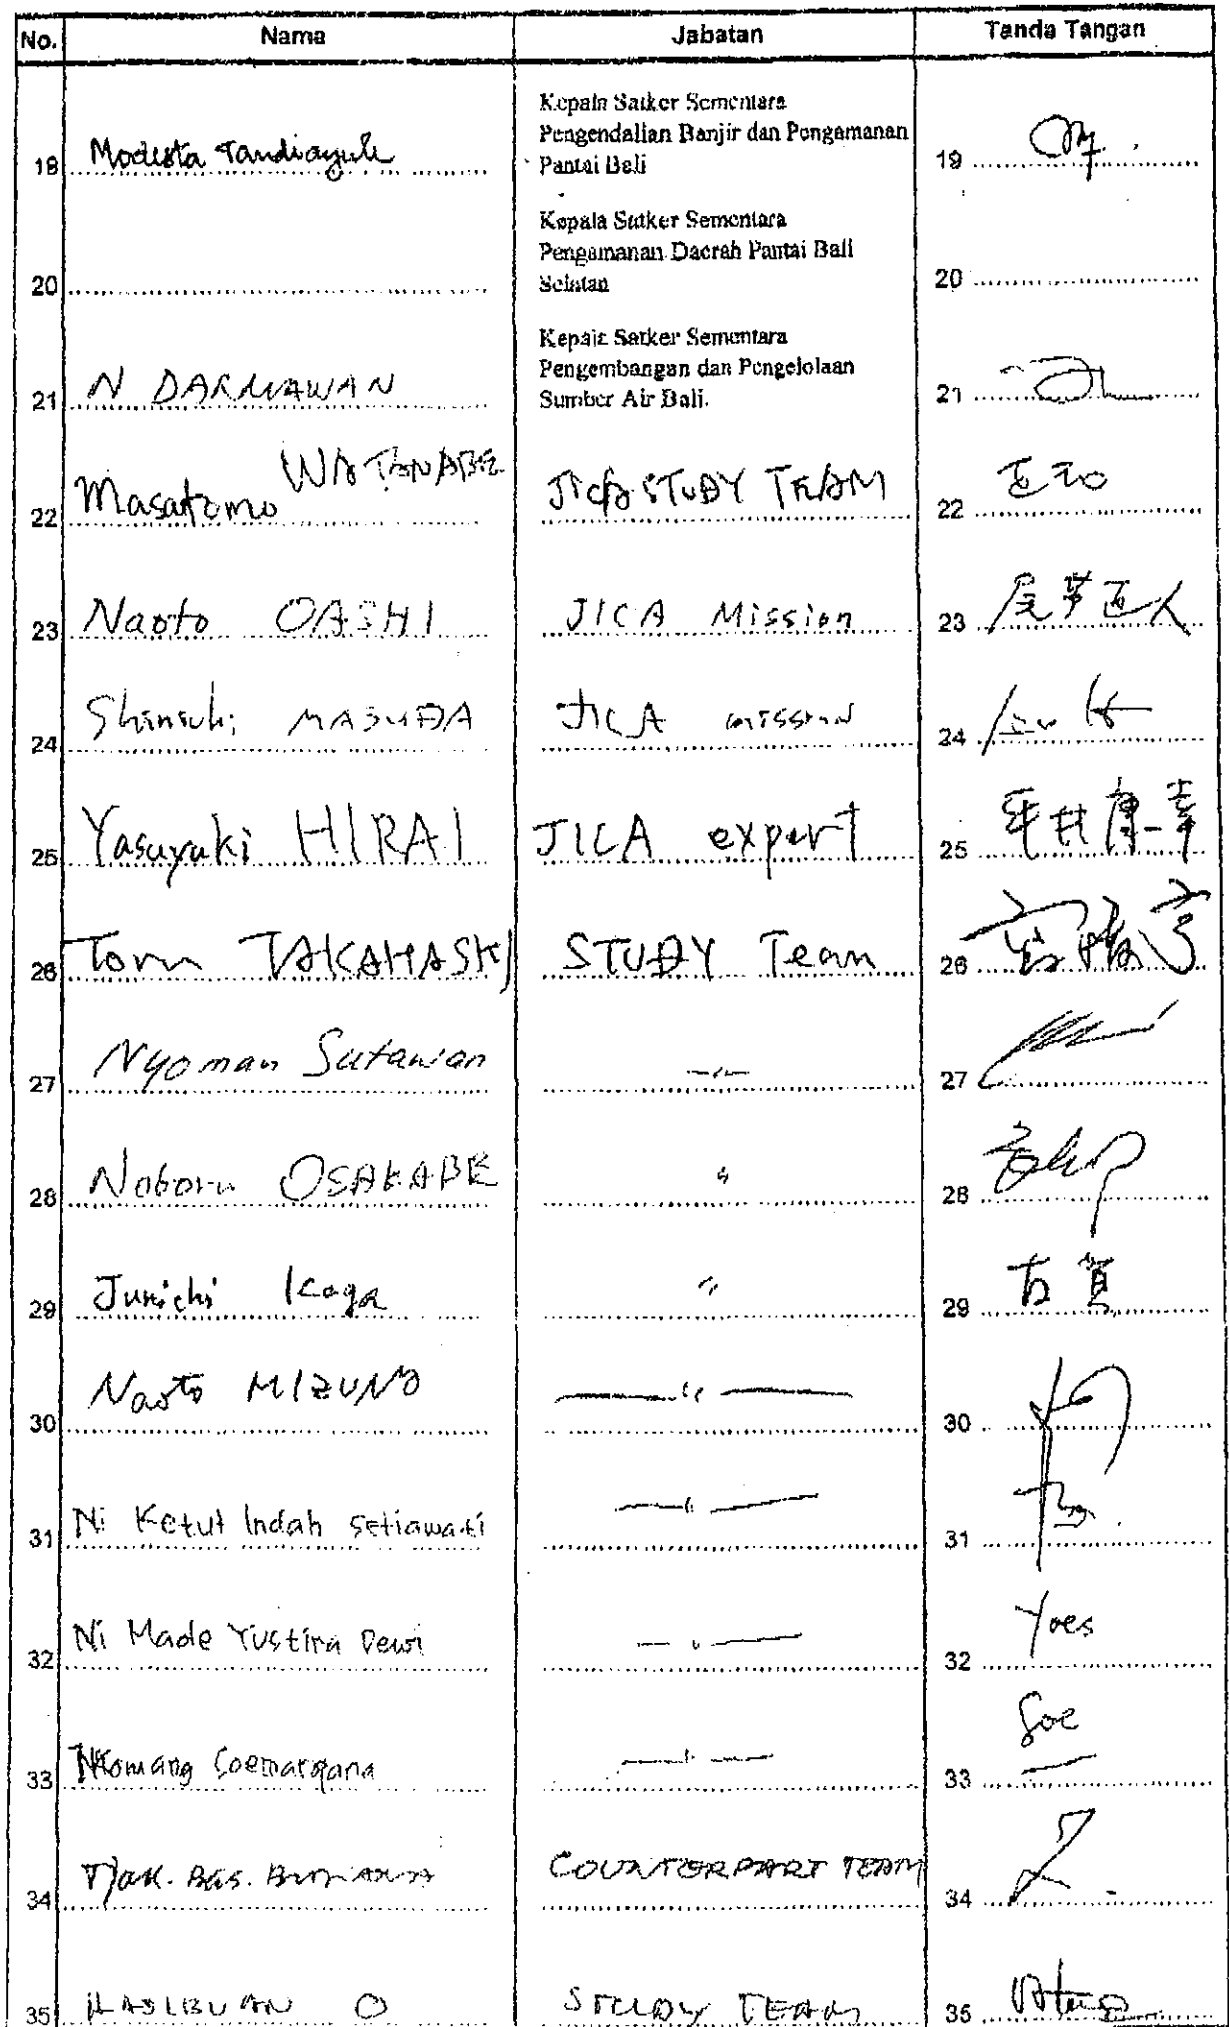 No. Nama Jabatan Tanda Tangan
Kepala Satker Sementara
Pengendalian Banjir dan Pengamanan
18 Modesta Tandiayuk Pantai Bali 19
Kepala Satker Sementara
Pengamanan Daerah Pantai Bali
20 Selatan 20
Kepala Satker Sementara
Pengembangan dan Pengelolaan
21 N DARMAWAN Sumber Air Bali. 21
22 Masatomo WATANABE JICA STUDY TEAM 22
23 Naoto OASHI JICA Mission 23 尾芦直人
24 Shinichi MASUDA JICA mission 24
25 Yasuyuki HIRAI JICA expert 25 平井康幸
26 Toru TAKAHASHI STUDY Team 26
27 Nyoman Sutawan 〃 27
28 Noboru OSAKABE 〃 28
29 Junichi Koga 〃 29 古賀
30 Naoto MIZUNO 〃 30
31 Ni Ketut Indah Setiawati 〃 31
32 Ni Made Yustira Dewi 〃 32 Yoes
33 Komang Soemargana 〃 33 Soe
34 Tjok. Bas. COUNTERPART TEAM 34
35 HASIBUAN O STUDY TEAM 35